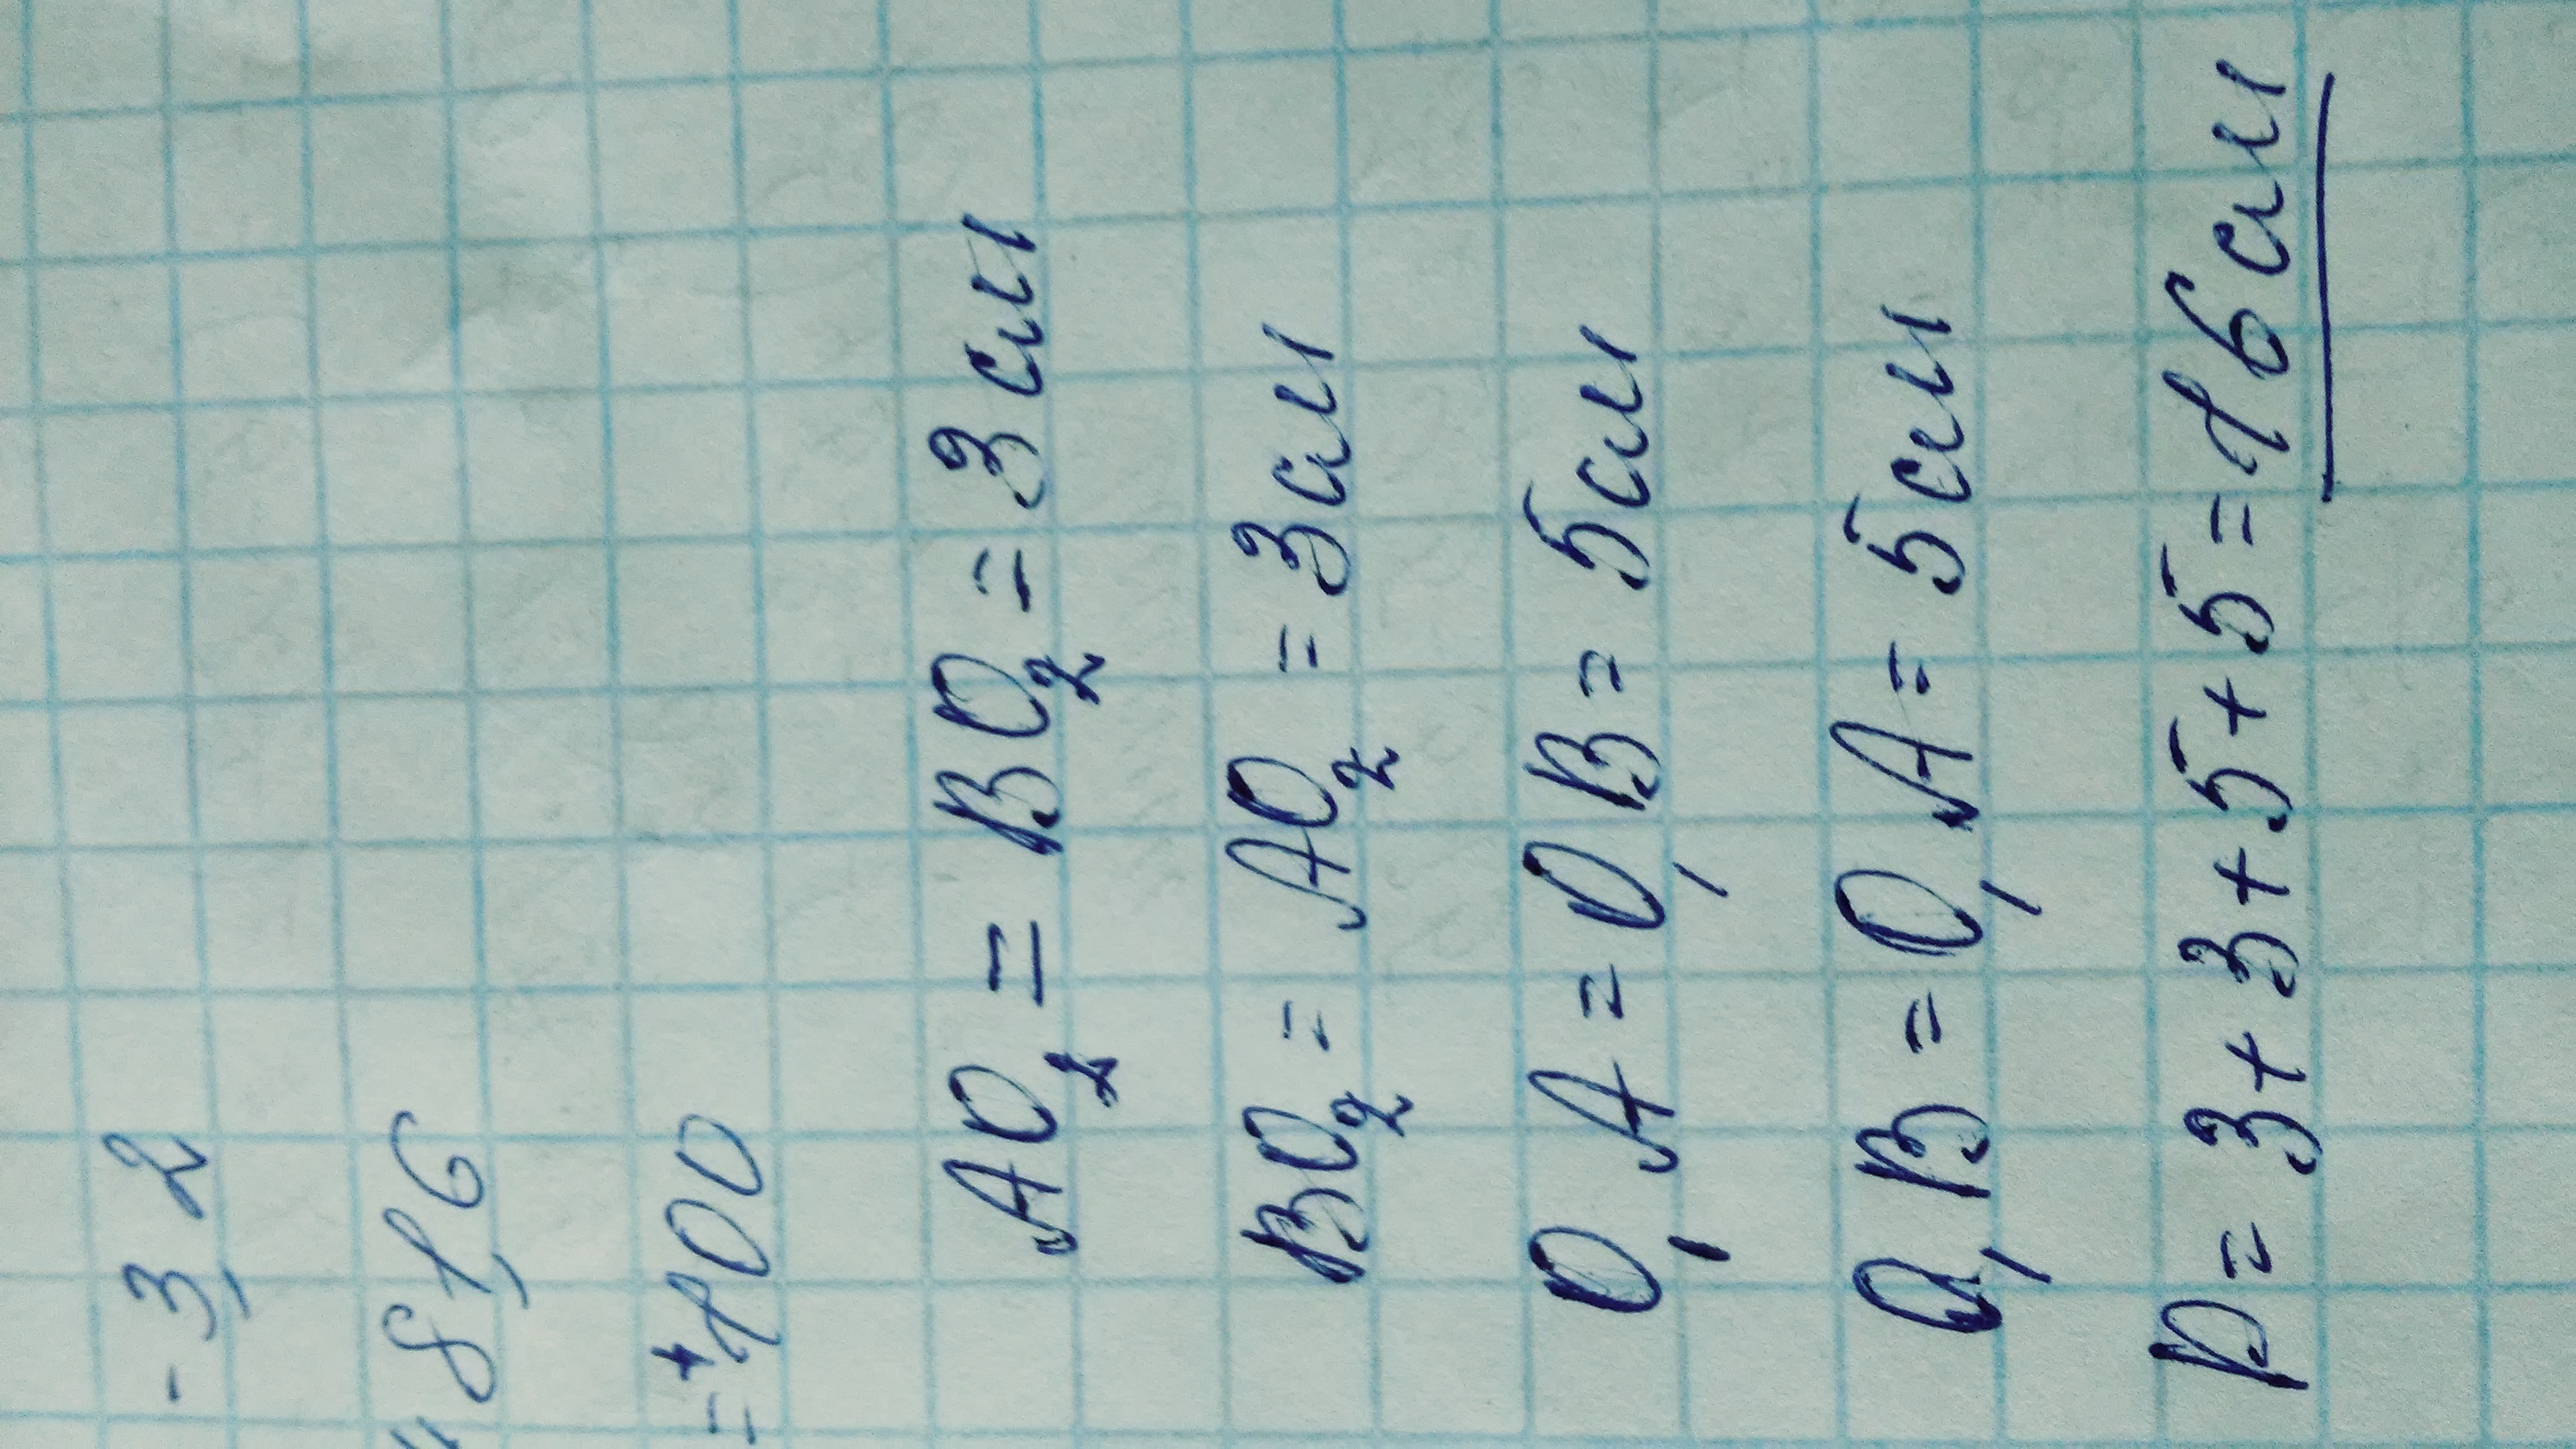 - 3,2
81,6
= +100
AO₂ = BO₂ = 3 см
BO₂ = AO₂ = 3 см
O₁A = O₁B = 5 см
O₁B = O₁A = 5 см
P = 3 + 3 + 5 + 5 = 16 см